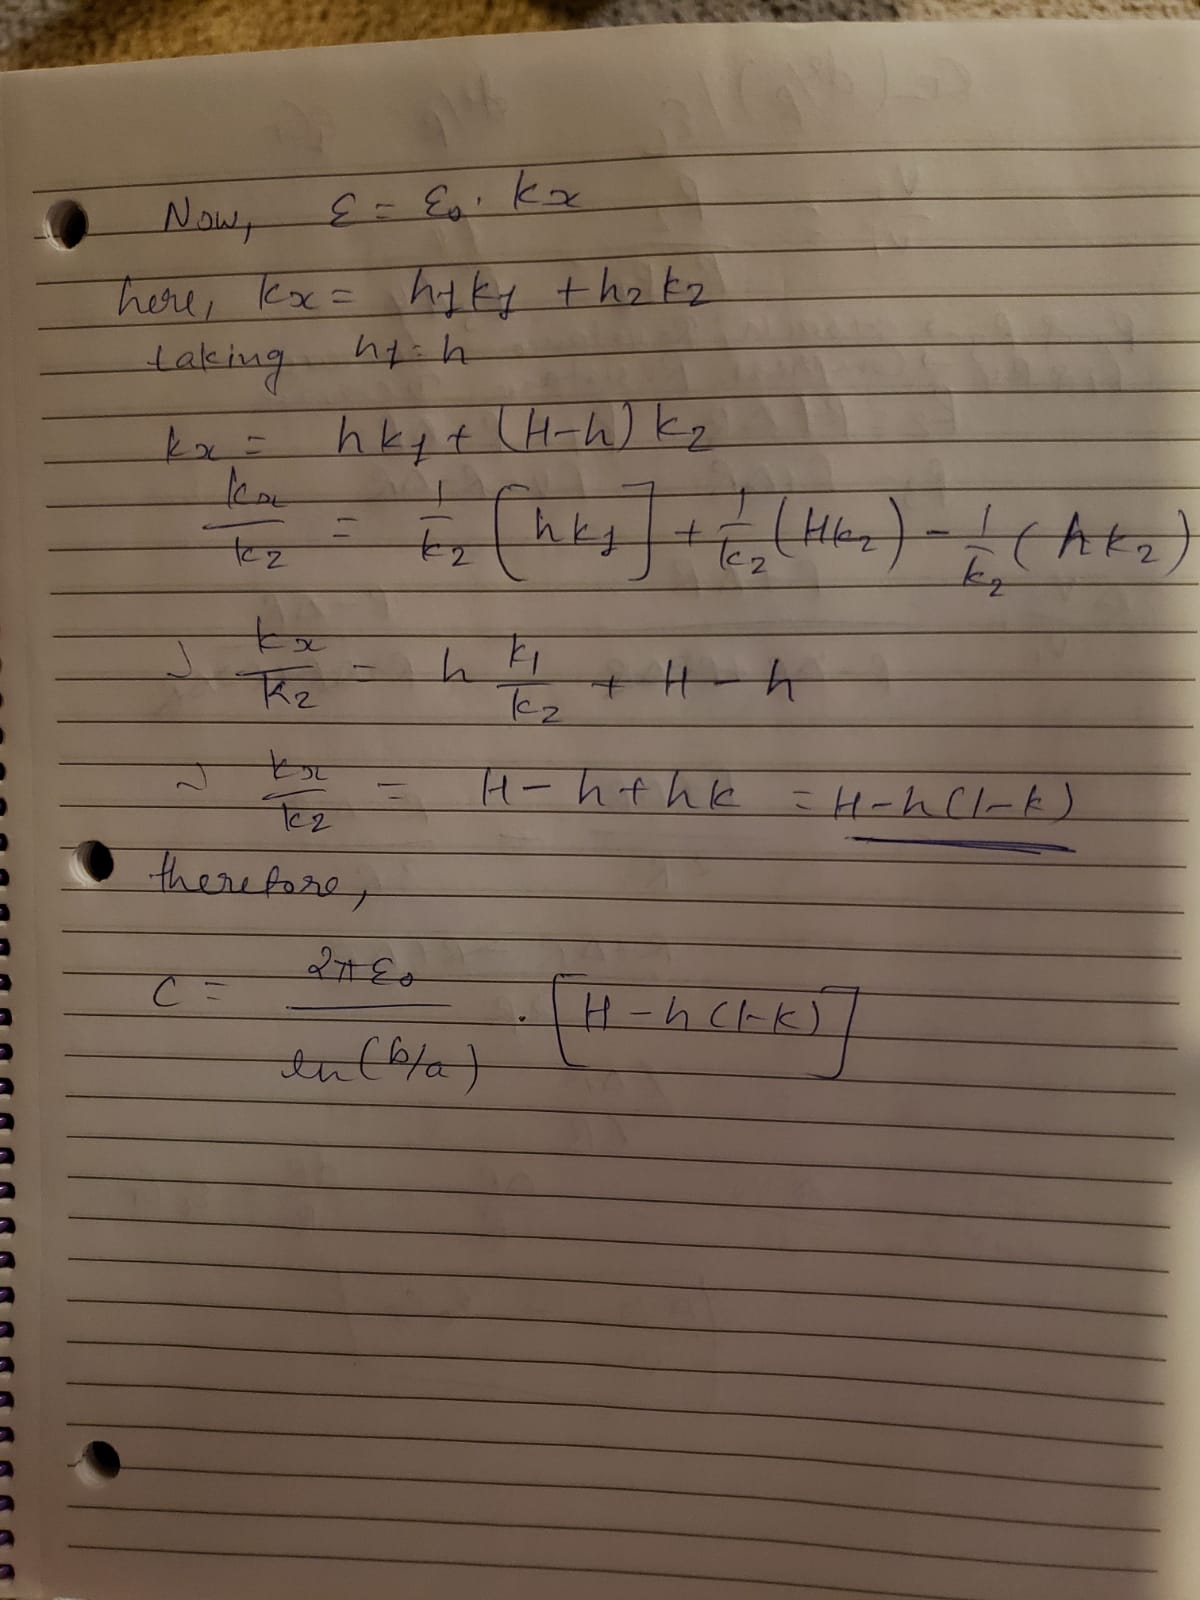 Now, ε = ε₀ · kx
here, kx = h1k1 + h2k2
taking h1 = h
kx = hk1 + (H-h) k2
kx/k2 = 1/k2 [hk1] + 1/k2 (Hk2) - 1/k2 (hk2)
kx/k2 = h k1/k2 + H - h
kx/k2 = H - h + hk = H-h(1-k)
therefore,
C = 2πε₀/ln(b/a) · [H - h(1-k)]